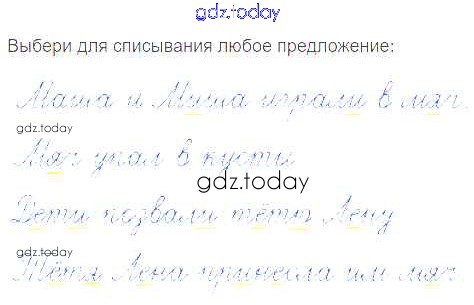 gdz.today
Выбери для списывания любое предложение:
Маша и Миша играли в мяч.
gdz.today
Мяч упал в кусты
gdz.today
Дети позвали тётю Лену
gdz.today
Тётя Лена принесла им мяч